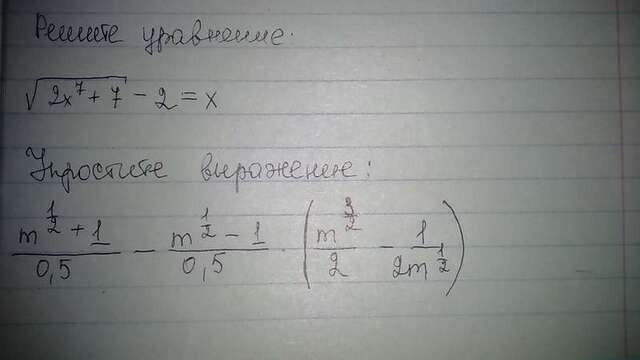 Решите уравнение.
√(2x⁷ + 7) - 2 = x
Упростите выражение:
(m^(1/2) + 1)/0,5 - (m^(1/2) - 1)/0,5 · (m^(3/2)/2 - 1/(2m^(1/2)))